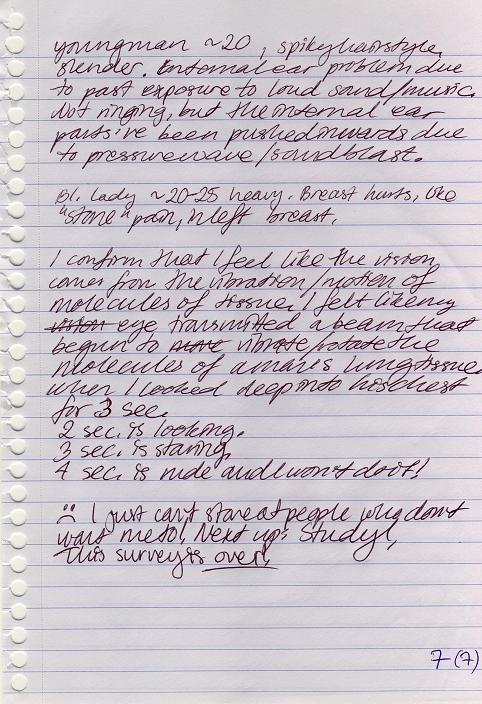 youngman ~20, spikyhairstyle,
slender. Internal ear problem due
to past exposure to loud sound/music.
Not ringing, but the internal ear
parts've been pushed inwards due
to pressurewave/soundblast.
Bl. Lady ~20-25 heavy. Breast hurts, like
"stone" pain, in left breast.
I confirm that I feel like the vision
comes from the vibration/motion of
molecules of tissue. I felt like my
vision eye transmitted a beam that
begun to vibrate/rotate the
molecules of a man's lung tissue
when I looked deep into his chest
for 3 sec.
2 sec. is looking.
3 sec. is staring,
4 sec. is rude and I won't do it!
:( I just can't stare at people who don't
want me to! Next up: Study!,
This survey is over!
7 (7)